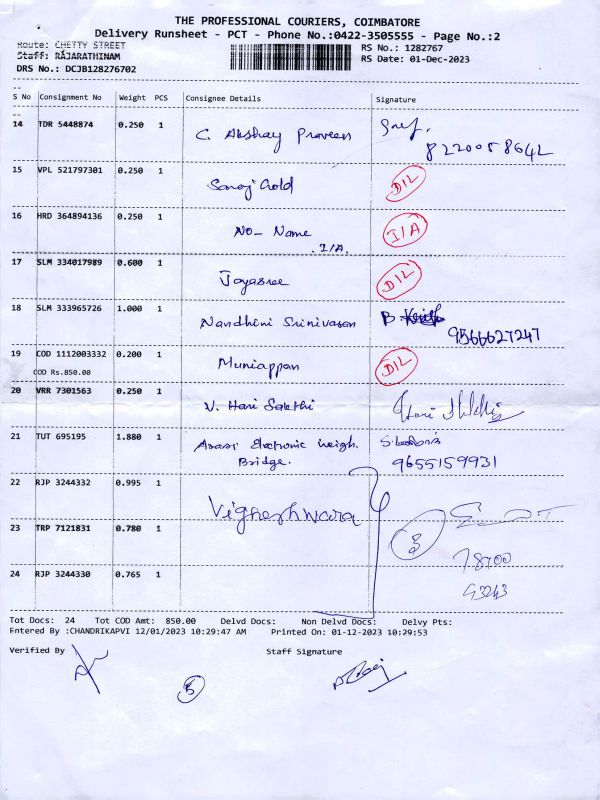 THE PROFESSIONAL COURIERS, COIMBATORE
Delivery Runsheet - PCT - Phone No.:0422-3505555 - Page No.:2
Route: CHETTY STREET
RS No.: 1282767
Staff: RAJARATHINAM
RS Date: 01-Dec-2023
DRS No.: DCJB128276702
S No Consignment No Weight PCS Consignee Details Signature
14 TDR 5448874 0.250 1 C. Akshay Praveen
8220058642
15 VPL 521797301 0.250 1 Saroj Gold D/L
16 HRD 364894136 0.250 1 No- Name I/A
I/A.
17 SLM 334017989 0.600 1 Jayasree D/L
18 SLM 333965726 1.000 1 Nandhini Srinivasan B.
9566627247
19 COD 1112003332 0.200 1 Muniappan D/L
COD Rs.850.00
20 VRR 7301563 0.250 1 V. Hari Sakthi
21 TUT 695195 1.880 1 Arasi Electronic Weigh.
Bridge. 9655159931
22 RJP 3244332 0.995 1 Vigneshwara
23 TRP 7121831 0.780 1
24 RJP 3244330 0.765 1
Tot Docs: 24 Tot COD Amt: 850.00 Delvd Docs: Non Delvd Docs: Delvy Pts:
Entered By :CHANDRIKAPVI 12/01/2023 10:29:47 AM Printed On: 01-12-2023 10:29:53
Verified By Staff Signature